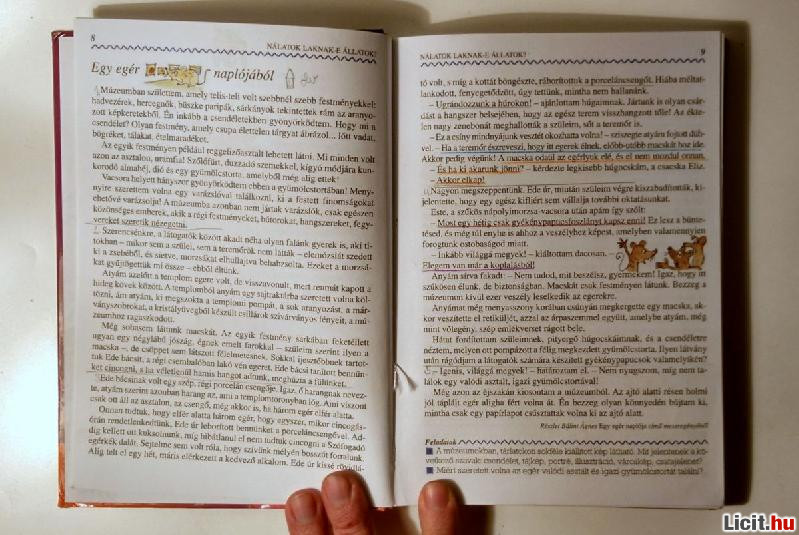 8
NÁLATOK LAKNAK-E ÁLLATOK?
Egy egér naplójából
Múzeumban születtem, amely telis-teli volt szebbnél szebb festményekkel:
hadvezérek, hercegnők, büszke paripák, sárkányok tekintettek rám az aranyo-
zott képkeretekből. Én inkább a csendéletekben gyönyörködtem. Hogy mi a
csendélet? Olyan festmény, amely csupa élettelen tárgyat ábrázol... lőtt vadat,
bögréket, tálakat, ételmaradékot.
Az egyik festményen például reggelizőasztalt lehetett látni. Mi minden volt
azon az asztalon, uramfia! Szőlőfürt, duzzadó szemekkel, kígyó módjára kun-
korodó almahéj, dió és egy gyümölcstorta, amelyből még alig ettek!
Vacsora helyett hányszor gyönyörködtem ebben a gyümölcstortában! Meny-
nyire szerettem volna egy varázslóval találkozni, ki a festett finomságokat
ehetővé varázsolja! A múzeumba azonban nem jártak varázslók, csak egészen
közönséges emberek, akik a régi festményeket, bútorokat, hangszereket, fegy-
vereket szerették nézegetni.
Szerencsénkre, a látogatók között akadt néha olyan falánk gyerek is, aki ti-
tokban – mikor sem a szülei, sem a teremőrök nem látták – elemózsiát szedett
ki a zsebéből, és sietve, morzsákat elhullajtva behabzsolta. Ezeket a morzsá-
kat gyűjtögettük mi össze – ebből éltünk.
Atyám azelőtt a templom egere volt, de visszavonult, mert reumát kapott a
hideg kövek között. A templomból anyám egy sajtraktárba szeretett volna köl-
tözni, ám atyám, ki megszokta a templomi pompát, a sok aranyozást, a már-
ványszobrokat, a kristályüvegből készült csillárok szivárványos fényeit, a mú-
zeumhoz ragaszkodott.
Még sohasem láttunk macskát. Az egyik festmény sarkában feketéllett
ugyan egy négylábú jószág, égnek emelt farokkal – szüleim szerint ilyen a
macska –, de csöppet sem látszott félelmetesnek. Sokkal ijesztőbbnek tartot-
tuk Ede bácsit, a régi csembalóban lakó vén egeret. Ede bácsi tanított bennün-
ket cincogni, s ha véletlenül hamis hangot adtunk, megházta a fülünket.
Ede bácsinak volt egy szép, régi porcelán csengője. Igaz, ő harangnak nevez-
te, atyám szerint azonban harang az, ami a templomtoronyban lóg. Ami viszont
csak ott áll az asztalon, az csengő, még akkor is, ha három egér elfér alatta.
Onnan tudtuk, hogy elfér alatta három egér, hogy egyszer, mikor cincogás-
órán rendetlenkedtünk, Ede úr leborított bennünket a porceláncsengővel. Ad-
dig kellett ott kuksolnunk, míg hibátlanul el nem tudtuk cincogni a Szófogadó
egérkék dalát. Sejtelme sem volt róla, hogy szívünk mélyén bosszút forralunk.
Alig telt el egy hét, máris elérkezett a kedvező alkalom. Ede úr kissé rövidlá-
NÁLATOK LAKNAK-E ÁLLATOK?
9
tó volt, s míg a kottát böngészte, ráborítottuk a porceláncsengőt. Hiába méltat-
lankodott, fenyegetődzött, úgy tettünk, mintha nem hallanánk.
– Ugrándozzunk a húrokon! – ajánlottam húgaimnak. Jártunk is olyan csár-
dást a hangszer belsejében, hogy az egész terem visszhangzott tőle! Az ékte-
len nagy zenebonát meghallották a szüleim, sőt a teremőr is.
– Ez a csíny mindnyájunk vesztét okozhatta volna! – sziszegte atyám fojtott düh-
vel. – Ha a teremőr észreveszi, hogy itt egerek élnek, előbb-utóbb macskát hoz ide.
Akkor pedig végünk! A macska odaül az egérlyuk elé, és el nem mozdul onnan.
– És ha ki akarunk jönni? – kérdezte legkisebb húgocskám, a csacska Eliz.
– Akkor elkap!
Nagyon megszeppentünk. Ede úr, miután szüleim végre kiszabadították, ki-
jelentette, hogy egy egész kiflíért sem vállalja további oktatásunkat.
Este, a szűkös nápolyimorzsa-vacsora után apám így szólt:
– Most egy hétig csak gyékénypapucsfoszlányt kapsz enni! Ez lesz a bünte-
tésed, és még túl enyhe is ahhoz a veszélyhez képest, amelyben valamennyien
forogtunk ostobaságod miatt.
– Inkább világgá megyek! – kiáltottam dacosan. –
Elegem van már a koplalásból!
Anyám sírva fakadt: – Nem tudod, mit beszélsz, gyermekem! Igaz, hogy itt
szűkösen élünk, de biztonságban. Macskát csak festményen látunk. Bezzeg a
múzeumon kívül ezer veszély leselkedik az egerekre.
Anyámat még menyasszony korában csúnyán megkergette egy macska, ak-
kor veszítette el retiküljét, azzal az árpaszemmel együtt, amelybe atyám, még
mint vőlegény, szép emlékverset rágott bele.
Hátat fordítottam szüleimnek, pityergő húgocskáimnak, és a csendéletre
néztem, melyen ott pompázott a félig megkezdett gyümölcstorta. Ilyen látvány
után rágódjam a látogatók számára készített gyékénypapucsok valamelyikén?
– Igenis, világgá megyek! – határoztam el. – Nem nyugszom, míg nem ta-
lálok egy valódi asztalt, igazi gyümölcstortával!
Még azon az éjszakán kiosontam a múzeumból. Az ajtó alatti résen holmi
jól táplált egér aligha fért volna át. Én bezzeg olyan könnyedén bújtam ki,
mintha csak egy papírlapot csúsztattak volna ki az ajtó alatt.
Részlet Bálint Ágnes Egy egér naplója című meseregényéből
Feladatok
A múzeumokban, tárlatokon sokféle kiállított kép látható. Mit jelentenek a kö-
vetkező szavak: csendélet, tájkép, portré, illusztráció, városkép, csatajelenet?
Miért szeretett volna az egér valódi asztalt és igazi gyümölcstortát találni?
Licit.hu